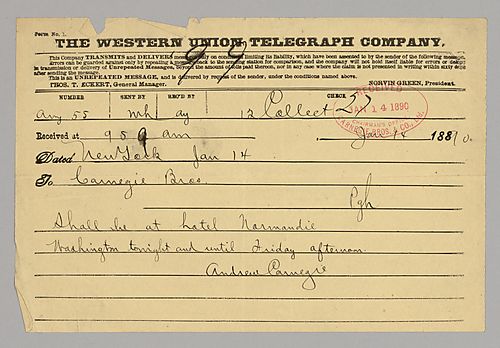 Form No. 1.
THE WESTERN UNION TELEGRAPH COMPANY.
This Company TRANSMITS and DELIVERS messages only on conditions limiting its liability, which have been assented to by the sender of the following message.
Errors can be guarded against only by repeating a message back to the sending station for comparison, and the company will not hold itself liable for errors or delays
in transmission or delivery of Unrepeated Messages, beyond the amount of tolls paid thereon, nor in any case where the claim is not presented in writing within sixty days
after sending the message.
This is an UNREPEATED MESSAGE, and is delivered by request of the sender, under the conditions named above.
THOS. T. ECKERT, General Manager. NORVIN GREEN, President.
NUMBER SENT BY REC'D BY CHECK
55 12 Collect
RECEIVED
JAN 14 1890
CHAIRMAN'S OFFICE
CARNEGIE BROS. & CO., Ltd.
Received at 959 am Jan 14 1890
Dated New York Jan 14
To Carnegie Bros.
Pgh
Shall be at hotel Normandie
Washington tonight and until Friday afternoon
Andrew Carnegie